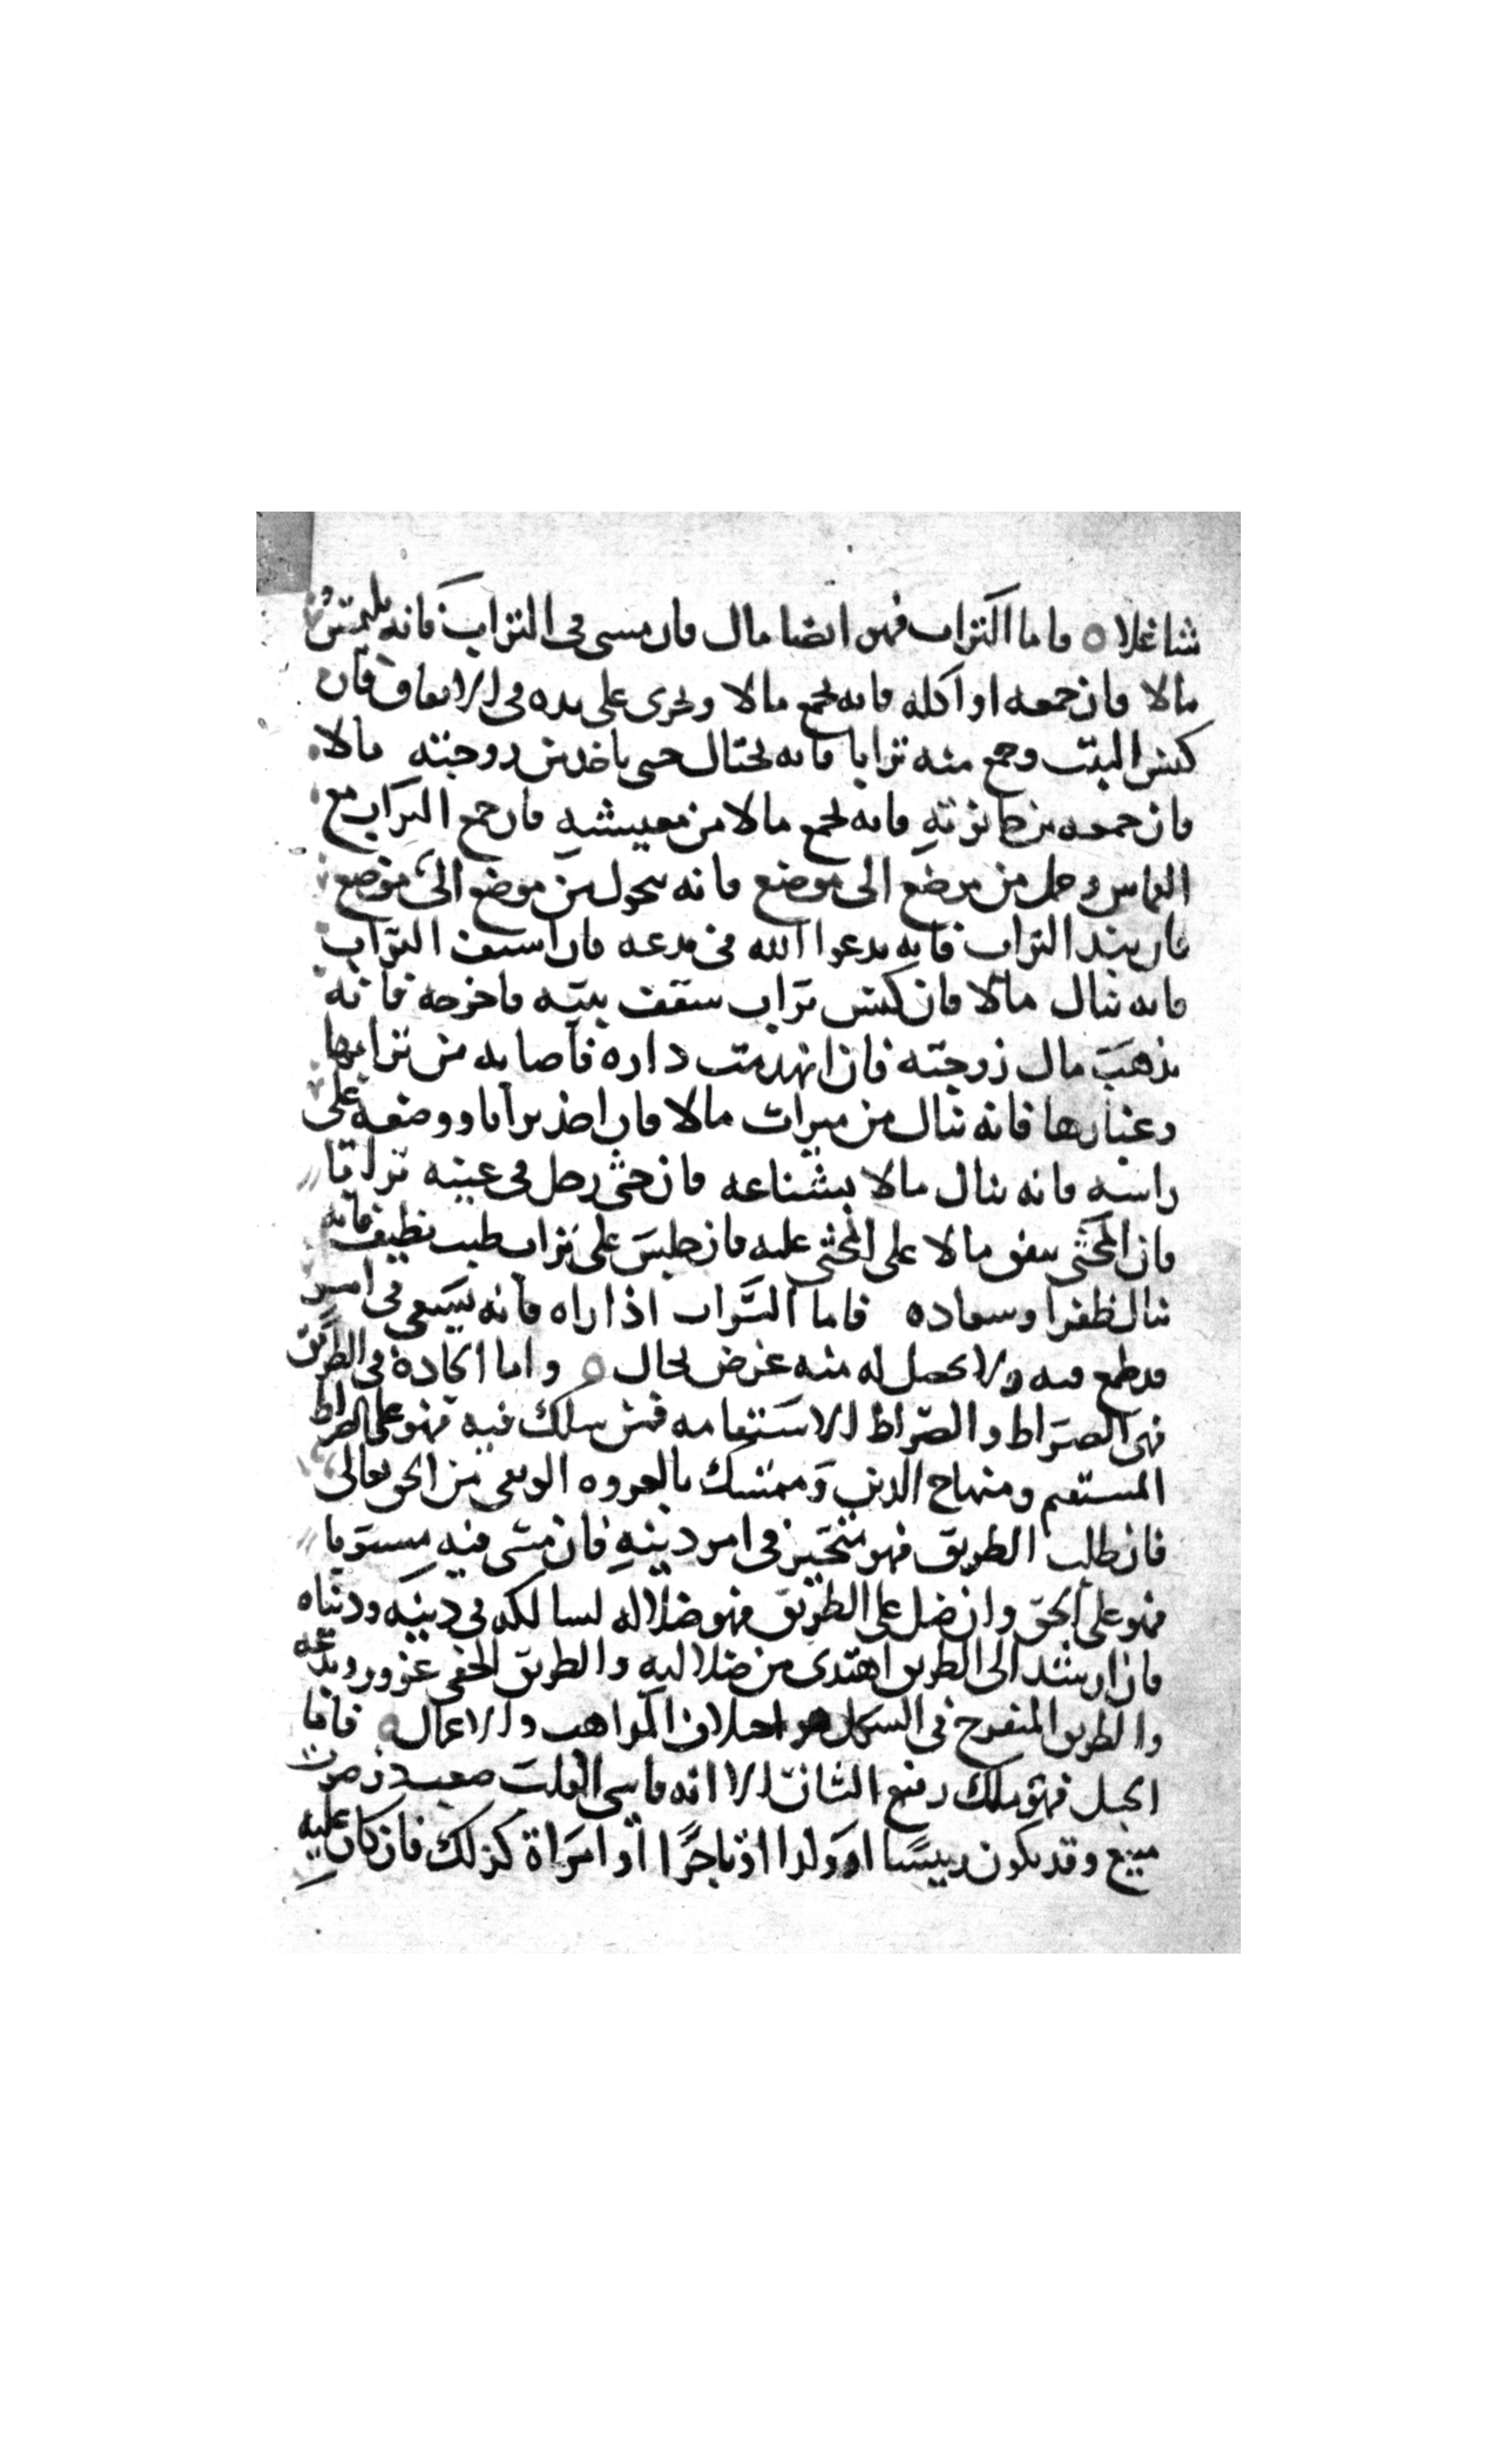 شاغلا ۝ فاما التراب فهو ايضا مال فان مشى فى التراب فانه يلتمس
مالا فان جمعه او اكله فانه يجمع مالا ويجرى على يده فى الانفاق فان
كنس البيت وجمع منه ترابا فانه يحتال حتى ياخذ من زوجته مالا
فان جمعه من حانوته فانه يجمع مالا من معيشته فان جمع التراب مع
القماش وحمل من موضع الى موضع فانه يتحول من موضع الى موضع
فان التراب فانه يدعوا الله فان استف التراب
فانه ينال مالا فان كنس تراب سقف بيته فاخرجه فانه
يذهب مال زوجته فان انهدمت داره فاصابه من ترابها
وغبارها فانه ينال من ميراث مالا فان اخذ ترابا ووضعه على
راسه فانه ينال مالا بشناعه فان حثى رجل فى عينيه ترابا
فان المحثى ينفق مالا على المحثى عليه فان جلس على تراب طيب نظيف فانه
ينال ظفرا وسعاده فاما السراب اذا راه فانه يسعى فى امر
قد طمع فيه ولا يحصل له منه غرض بحال ۝ واما الجادة فى الطريق
فهى الصراط والصراط الاستقامه فمن سلك فيه فهو على الصراط
المستقيم ومنهاج الدين وممسك بالعروه الوثقى من الحق تعالى
فان طلب الطريق فهو متحير فى امر دينه فان مشى فيه مستويا
فهو على الحق وان ضل على الطريق فهو ضلاله لسالكه فى دينه ودنياه
فان ارشد الى الطريق اهتدى من ضلاليه والطريق الخفى غرور وبدعه
والطريق المنفرج فى السكك هو اختلاف المذاهب والاعمال ۝ فاما
الجبل فهو ملك رفيع الشان الا انه قاسى القلب صعب ذو صوت
منيع وقد يكون رييسا او ولدا او تاجرا او امراة كذلك فان كان عليه